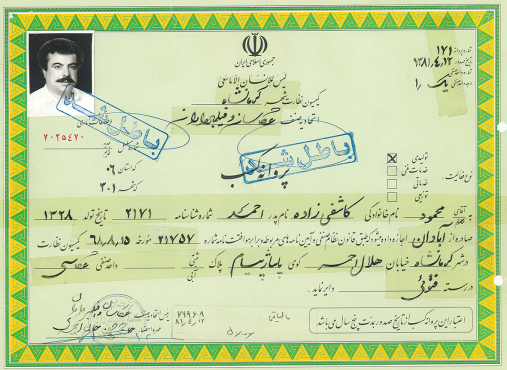 شماره پروانه ۱۷۱
تاریخ صدور ۱۳۸۱/۴/۱۲
جمهوری اسلامی ایران
کمیسیون نظارت شهر کرمانشاه
اتحادیه صنف عکاسان و فیلمبرداران
باطل شد
باطل شد
۲۰۲۵۴۷۰
پروانه کسب
کد استان ۰۶
کد شهر ۳۰۱
نوع فعالیت:
تولیدی
خدمات فنی
خدماتی
توزیعی
به آقای محمود نام خانوادگی کاشفی زاده نام پدر احمد شماره شناسنامه ۲۱۷۱ تاریخ تولد ۱۳۲۸
صادره از آبادان اجازه داده میشود طبق قانون نظام صنفی و آیین نامه های مربوطه و برابر موافقت نامه شماره ۲۱۷۵۷ مورخه ۶۸٫۸٫۱۵ کمیسیون نظارت
در شهر کرمانشاه خیابان هلال احمر کوی پاساژ پیام پلاک واحد صنفی عکاسی
در رسته فتوکپی دایر نماید.
اعتبار این پروانه کسب از تاریخ صدور بمدت پنج سال می باشد